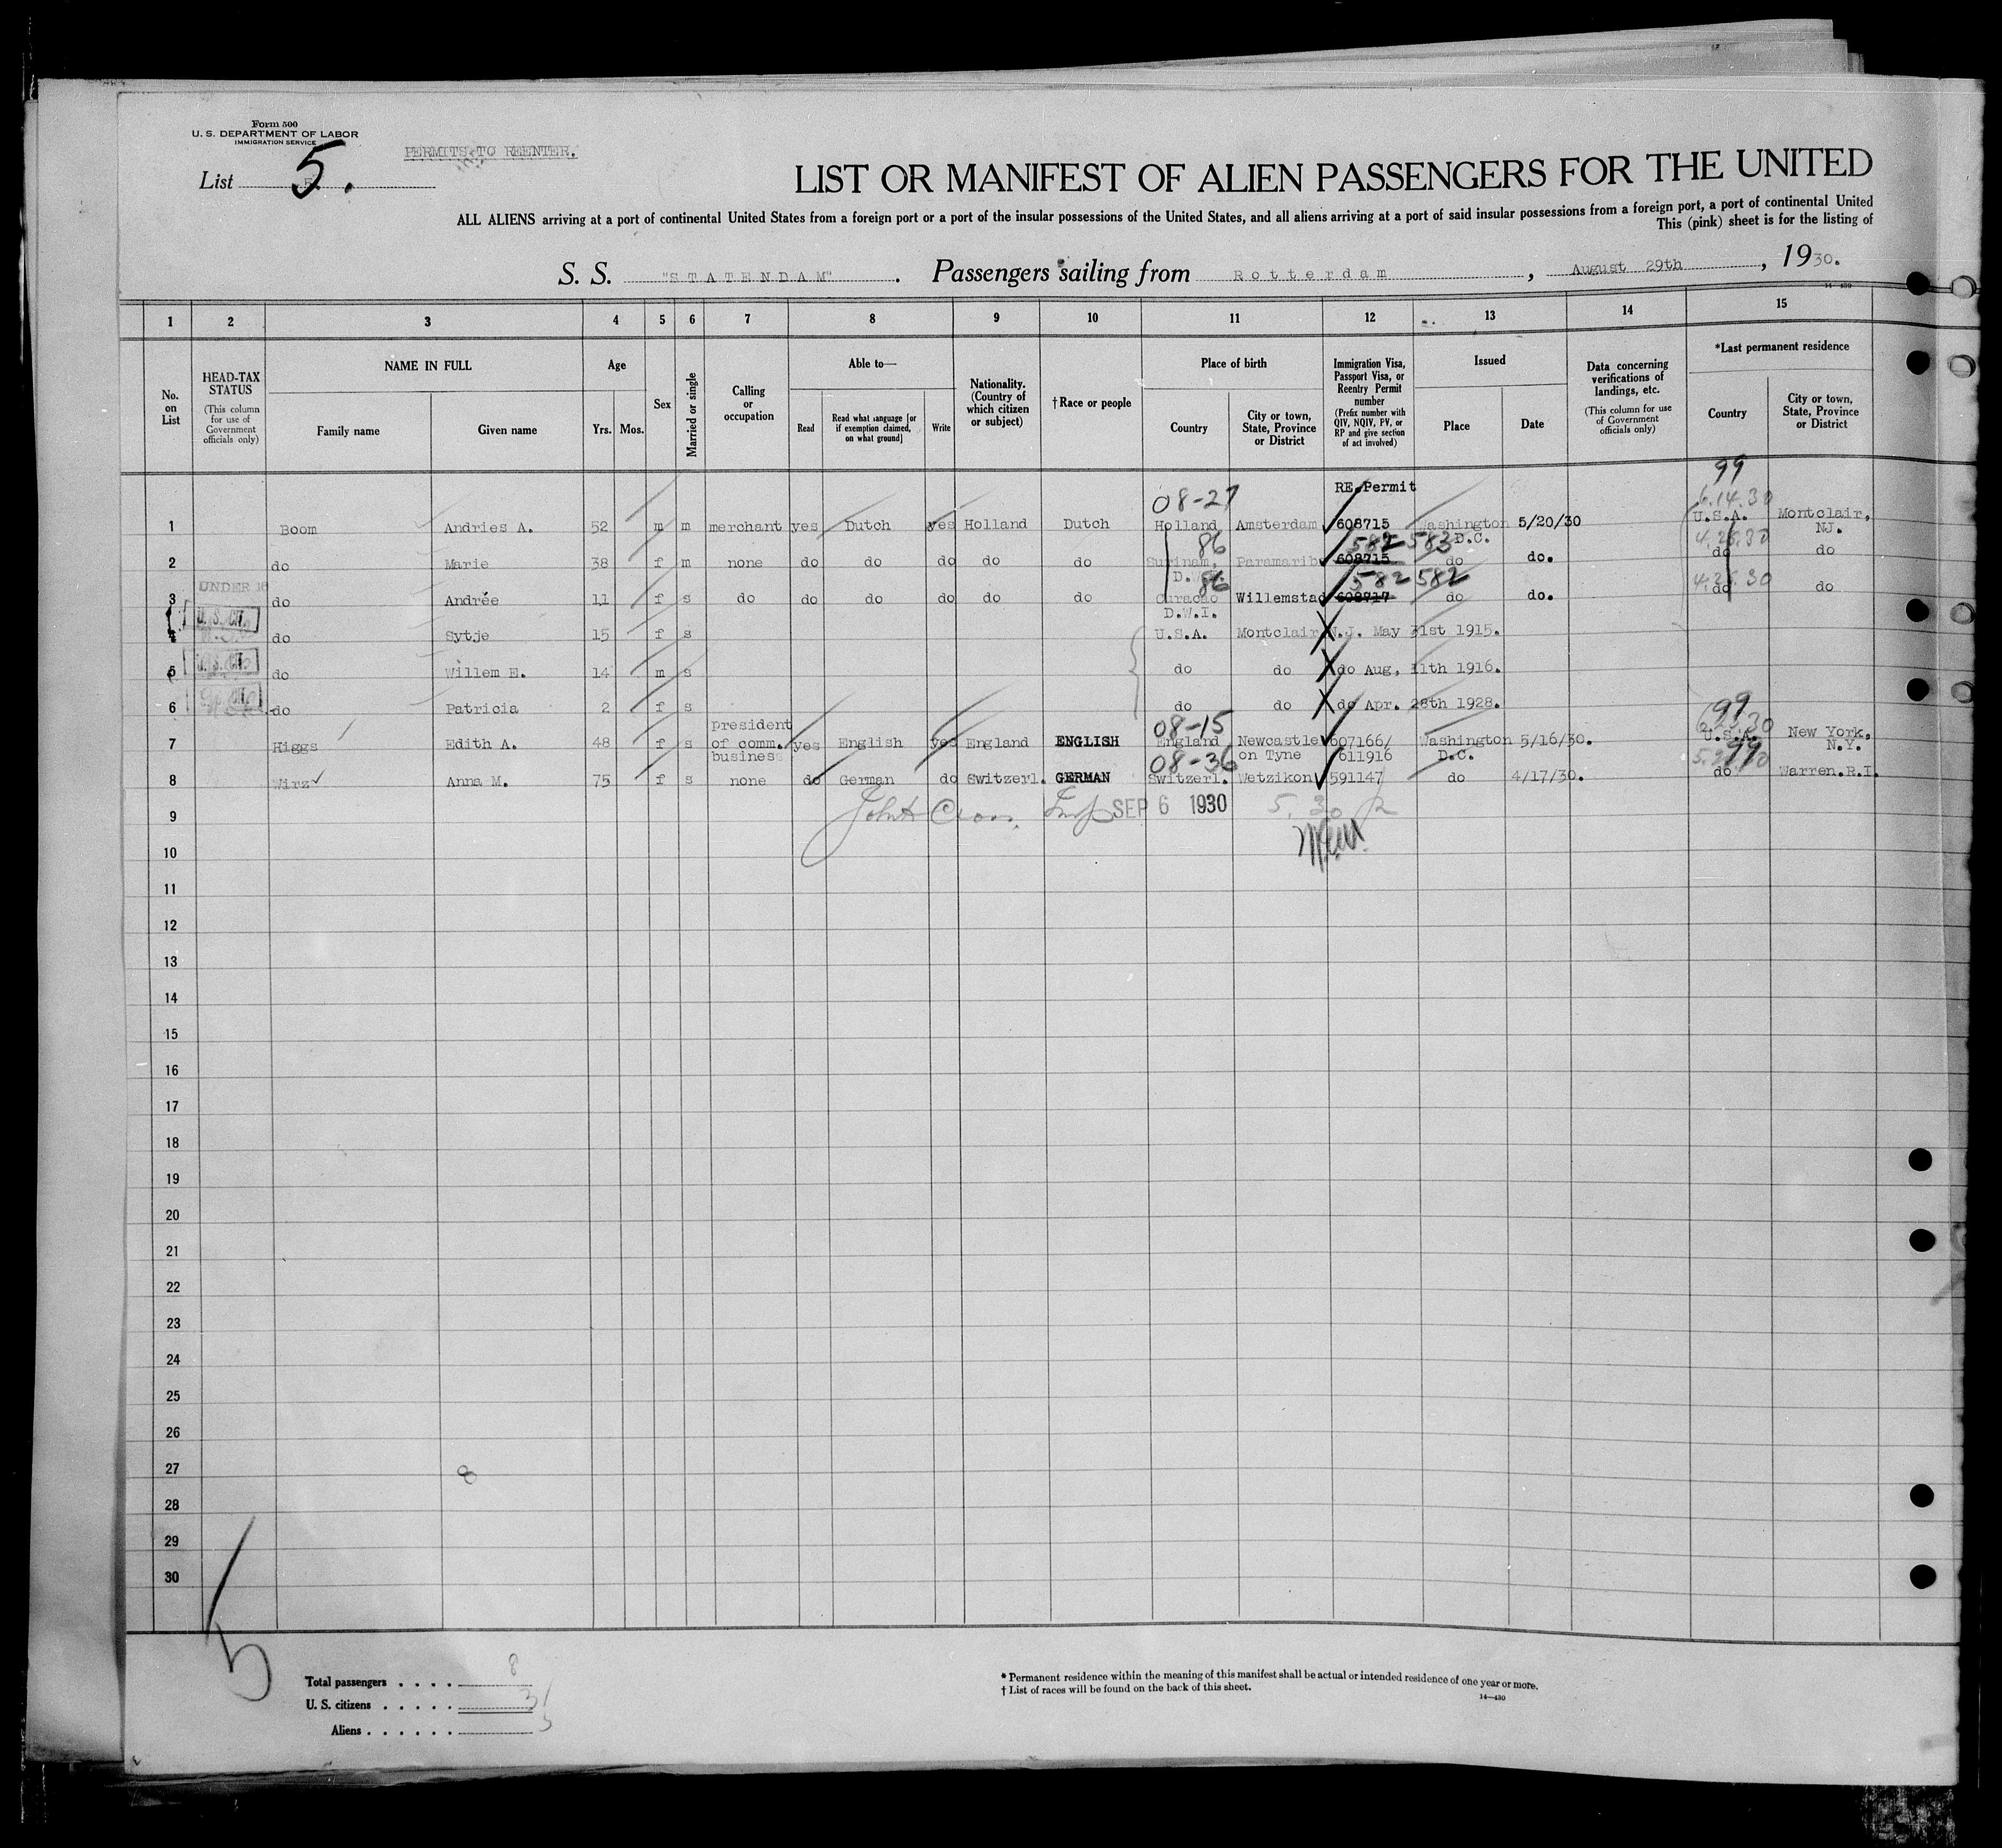 Form 500
U. S. DEPARTMENT OF LABOR
IMMIGRATION SERVICE
PERMITS TO REENTER.
List 5.
LIST OR MANIFEST OF ALIEN PASSENGERS FOR THE UNITED
ALL ALIENS arriving at a port of continental United States from a foreign port or a port of the insular possessions of the United States, and all aliens arriving at a port of said insular possessions from a foreign port, a port of continental United
This (pink) sheet is for the listing of
S. S. "STATENDAM". Passengers sailing from Rotterdam, August 29th, 1930.
14—430
1 2 3 4 5 6 7 8 9 10 11 12 13 14 15
No. on List
HEAD-TAX STATUS
(This column for use of Government officials only)
NAME IN FULL
Family name Given name
Age
Yrs. Mos.
Sex
Married or single
Calling or occupation
Able to—
Read Read what language [or if exemption claimed, on what ground] Write
Nationality. (Country of which citizen or subject)
†Race or people
Place of birth
Country City or town, State, Province or District
Immigration Visa, Passport Visa, or Reentry Permit number
(Prefix number with QIV, NQIV, PV, or RP and give section of act involved)
Issued
Place Date
Data concerning verifications of landings, etc.
(This column for use of Government officials only)
*Last permanent residence
Country City or town, State, Province or District
99
08-27 RE.Permit 6.14.30
1 Boom Andries A. 52 m m merchant yes Dutch yes Holland Dutch Holland Amsterdam 608715 Washington 5/20/30 U.S.A. Montclair,
86 582 583 D.C. 4.25.30 NJ.
2 do Marie 38 f m none do do do do do Surinam, Paramaribo 608715 do do. do do
UNDER 16 D.W. 86 582 582 4.25.30
3 do Andrée 11 f s do do do do do do Curacao Willemstad 608717 do do. do do
U. S. CIT. D.W.I.
4 do Sytje 15 f s U.S.A. Montclair N.J. May 31st 1915.
U. S. CIT.
5 do Willem E. 14 m s do do do Aug. 11th 1916.
CIT.
6 do Patricia 2 f s do do do Apr. 28th 1928.
president 08-15 99
7 Higgs Edith A. 48 f s of comm. yes English yes England ENGLISH England Newcastle 607166/ Washington 5/16/30. U.S.A. New York,
business on Tyne 611916 D.C. N.Y.
08-36 99
8 Wirz Anna M. 75 f s none do German do Switzerl. GERMAN Switzerl. Wetzikon 591147 do 4/17/30. do Warren.R.I.
9 SEP 6 1930
10
11
12
13
14
15
16
17
18
19
20
21
22
23
24
25
26
27 8
28
29
30
5
Total passengers . . . . 8
U. S. citizens . . . . . 3
Aliens . . . . . . 5
* Permanent residence within the meaning of this manifest shall be actual or intended residence of one year or more.
† List of races will be found on the back of this sheet.
14—430